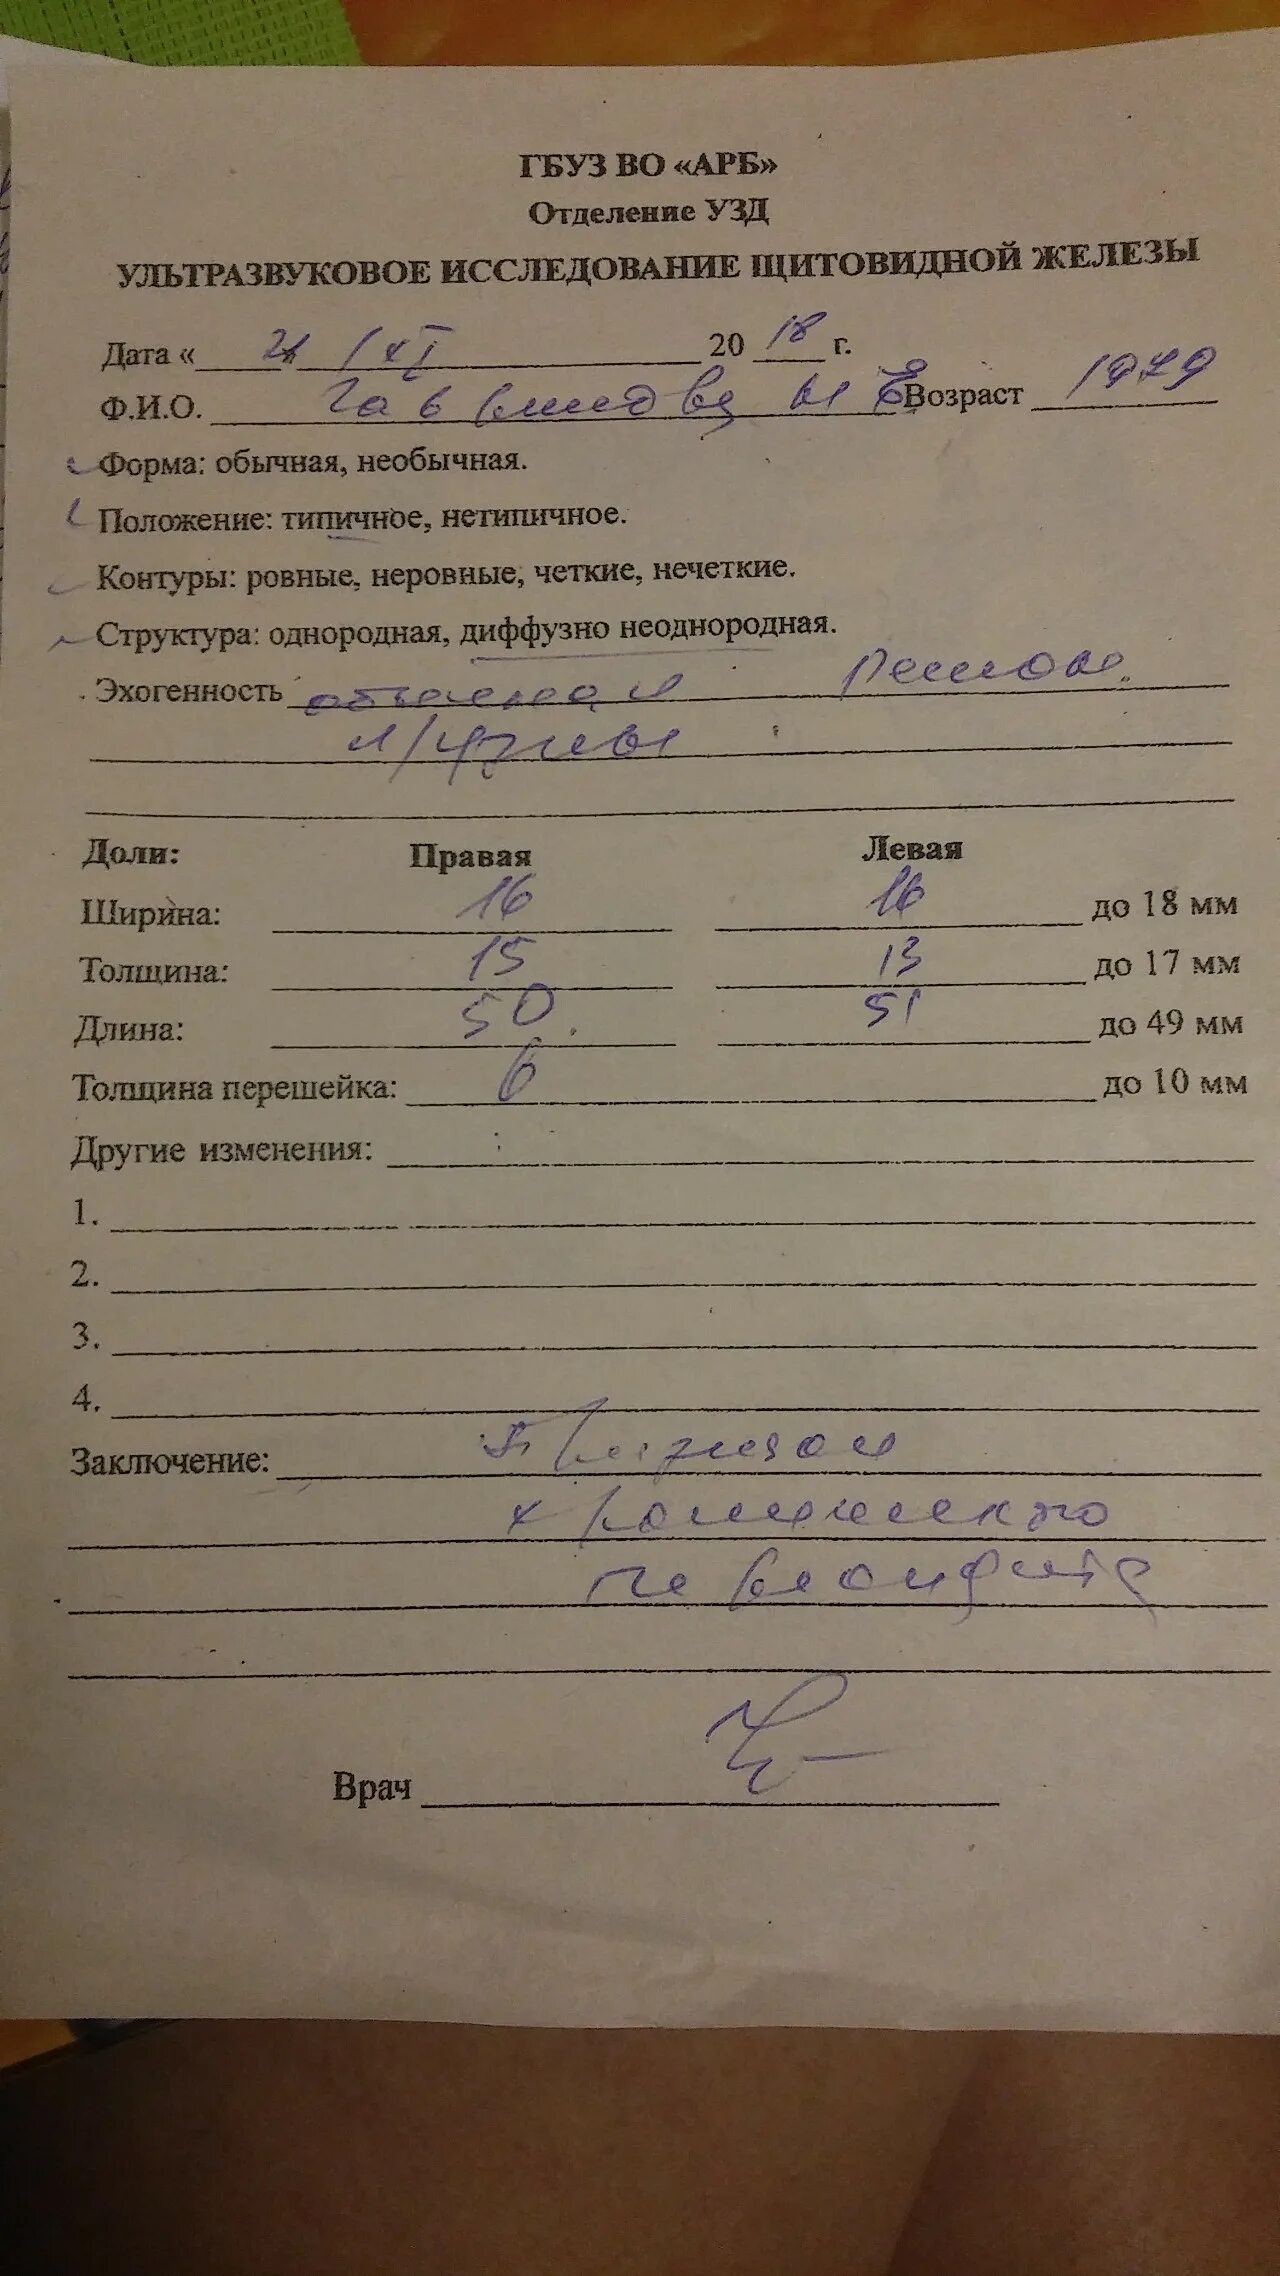 ГБУЗ ВО «АРБ»
Отделение УЗД
УЛЬТРАЗВУКОВОЕ ИССЛЕДОВАНИЕ ЩИТОВИДНОЙ ЖЕЛЕЗЫ
Дата « 21 / XI 20 18 г.
Ф.И.О. Возраст 1979
Форма: обычная, необычная.
Положение: типичное, нетипичное.
Контуры: ровные, неровные, четкие, нечеткие.
Структура: однородная, диффузно неоднородная.
Эхогенность
Доли: Правая Левая
Ширина: 16 16 до 18 мм
Толщина: 15 13 до 17 мм
Длина: 50 51 до 49 мм
Толщина перешейка: 6 до 10 мм
Другие изменения:
1.
2.
3.
4.
Заключение: Признаки
хронического
тиреоидита
Врач